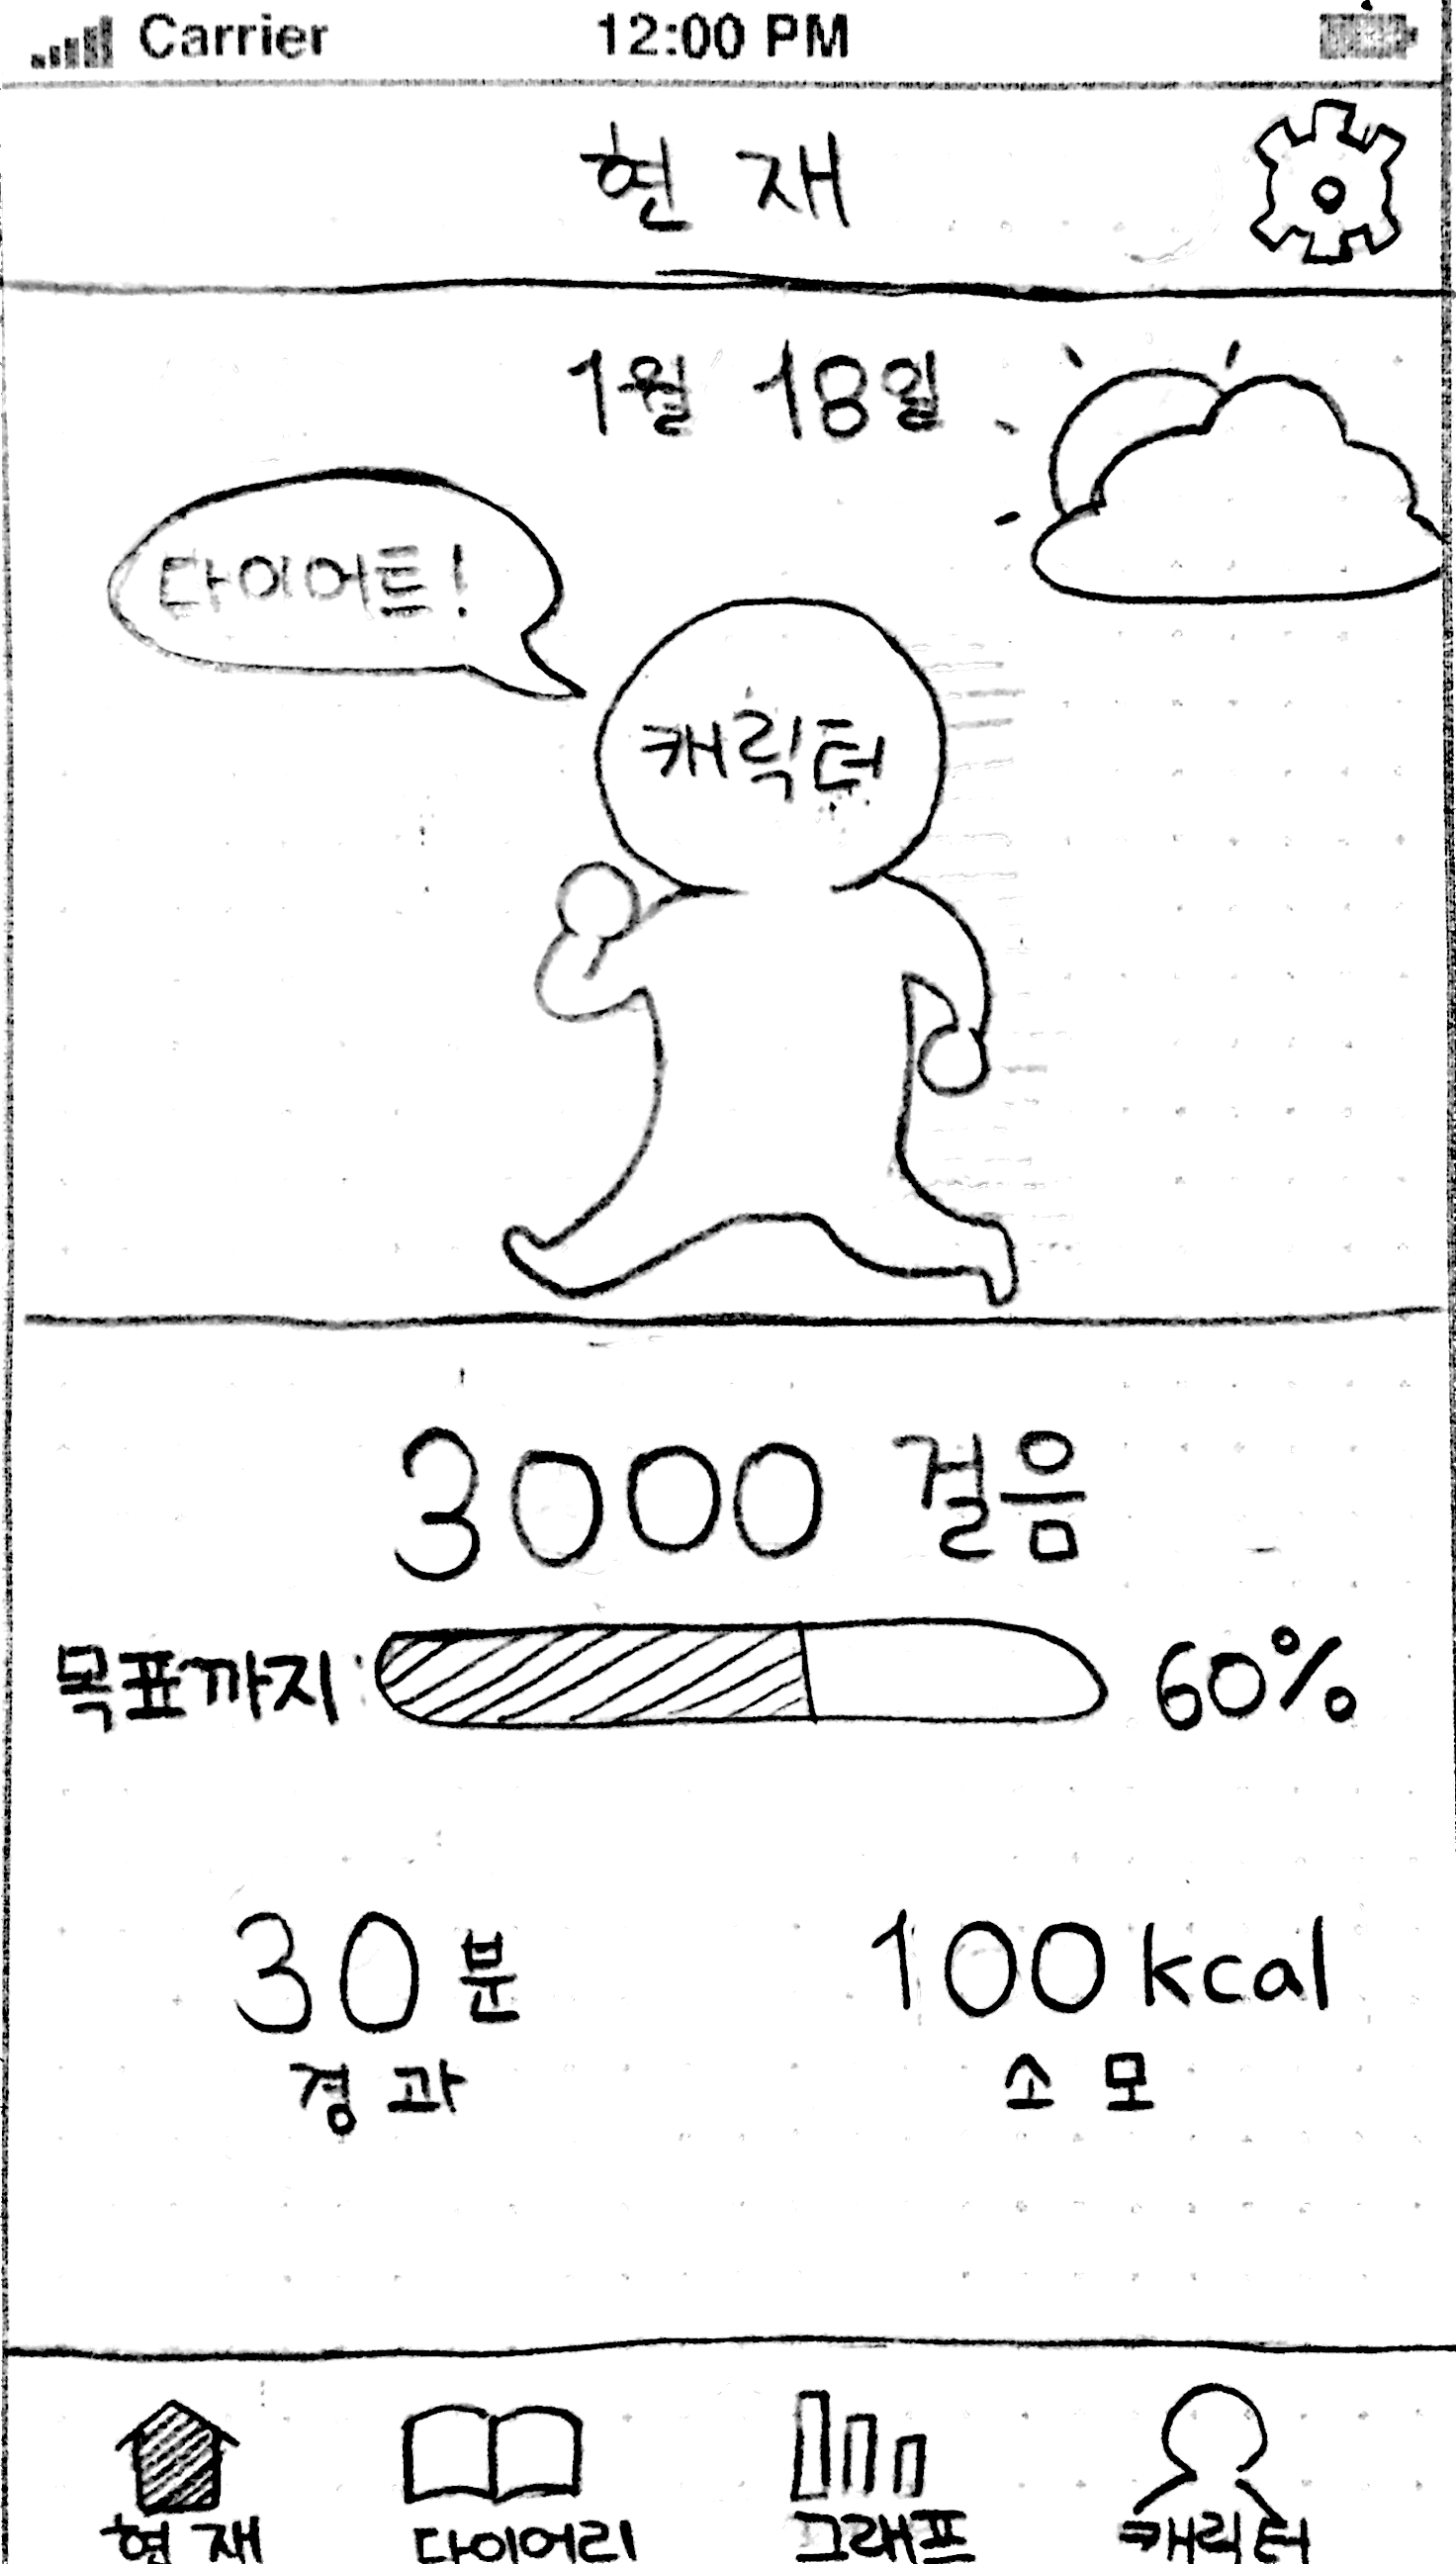 Carrier 12:00 PM
현재
1월 18일
다이어트!
캐릭터
3000 걸음
목표까지: 60%
30분 100kcal
경과 소모
현재 다이어리 그래프 캐릭터